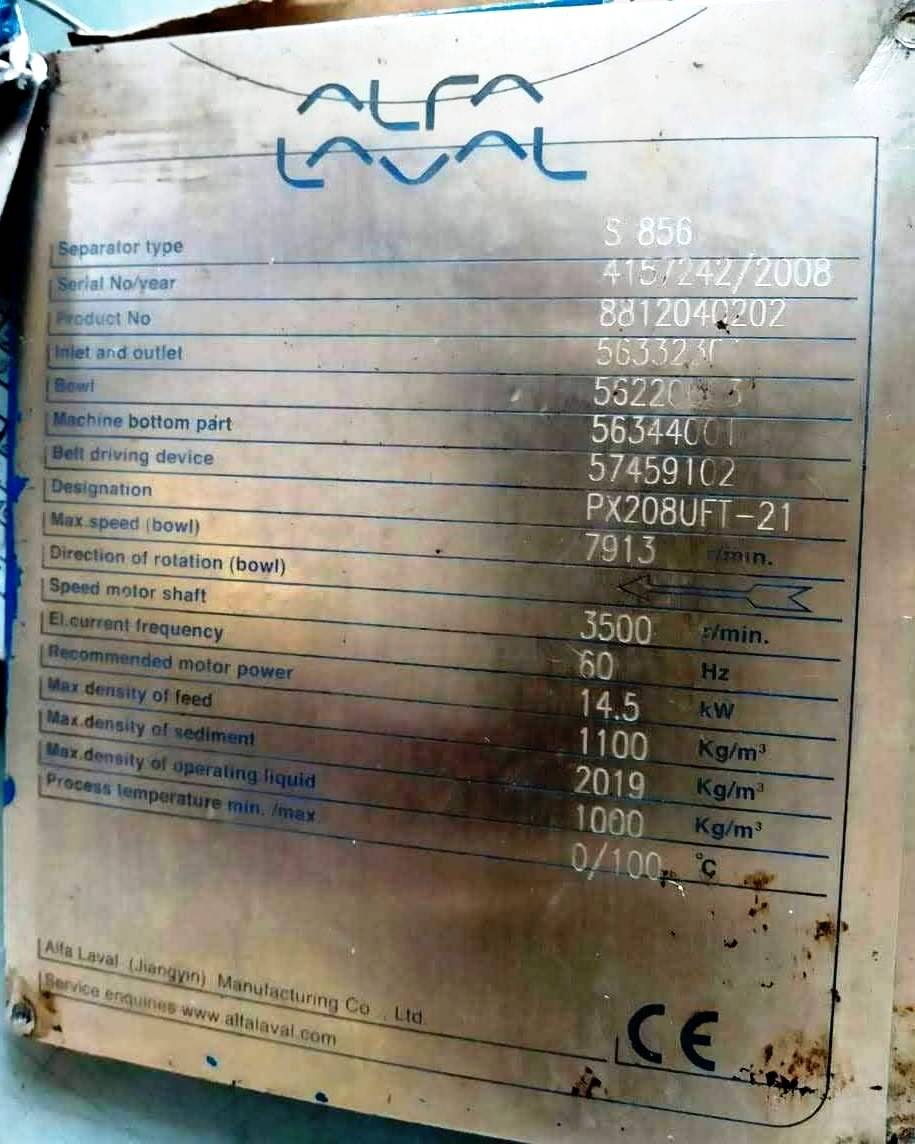 ALFA
LAVAL
Separator type S 856
Serial No/year 415/242/2008
Product No 8812040202
Inlet and outlet
Bowl
Machine bottom part
Belt driving device 57459102
Designation PX208UFT-21
Max.speed (bowl) 7913 r/min.
Direction of rotation (bowl)
Speed motor shaft 3500 r/min.
El.current frequency 60 Hz
Recommended motor power 14.5 kW
Max.density of feed 1100 Kg/m³
Max.density of sediment 2019 Kg/m³
Max.density of operating liquid 1000 Kg/m³
Process temperature min. /max 0/100 °C
Alfa Laval (Jiangyin) Manufacturing Co., Ltd.
Service enquiries www.alfalaval.com
CE